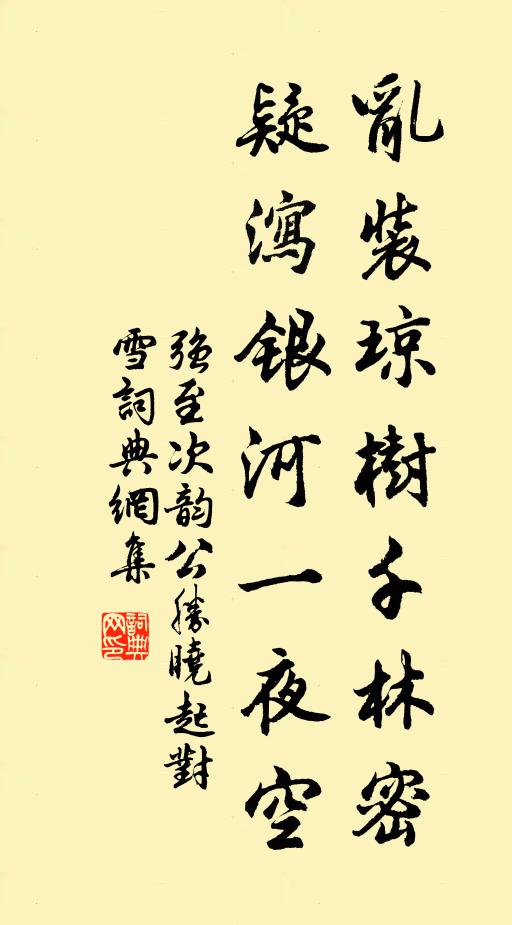 亂裝琼樹千林密
疑瀉銀河一夜空
強至次韵公勝曉起對
雪詞典網集
詞典
网印